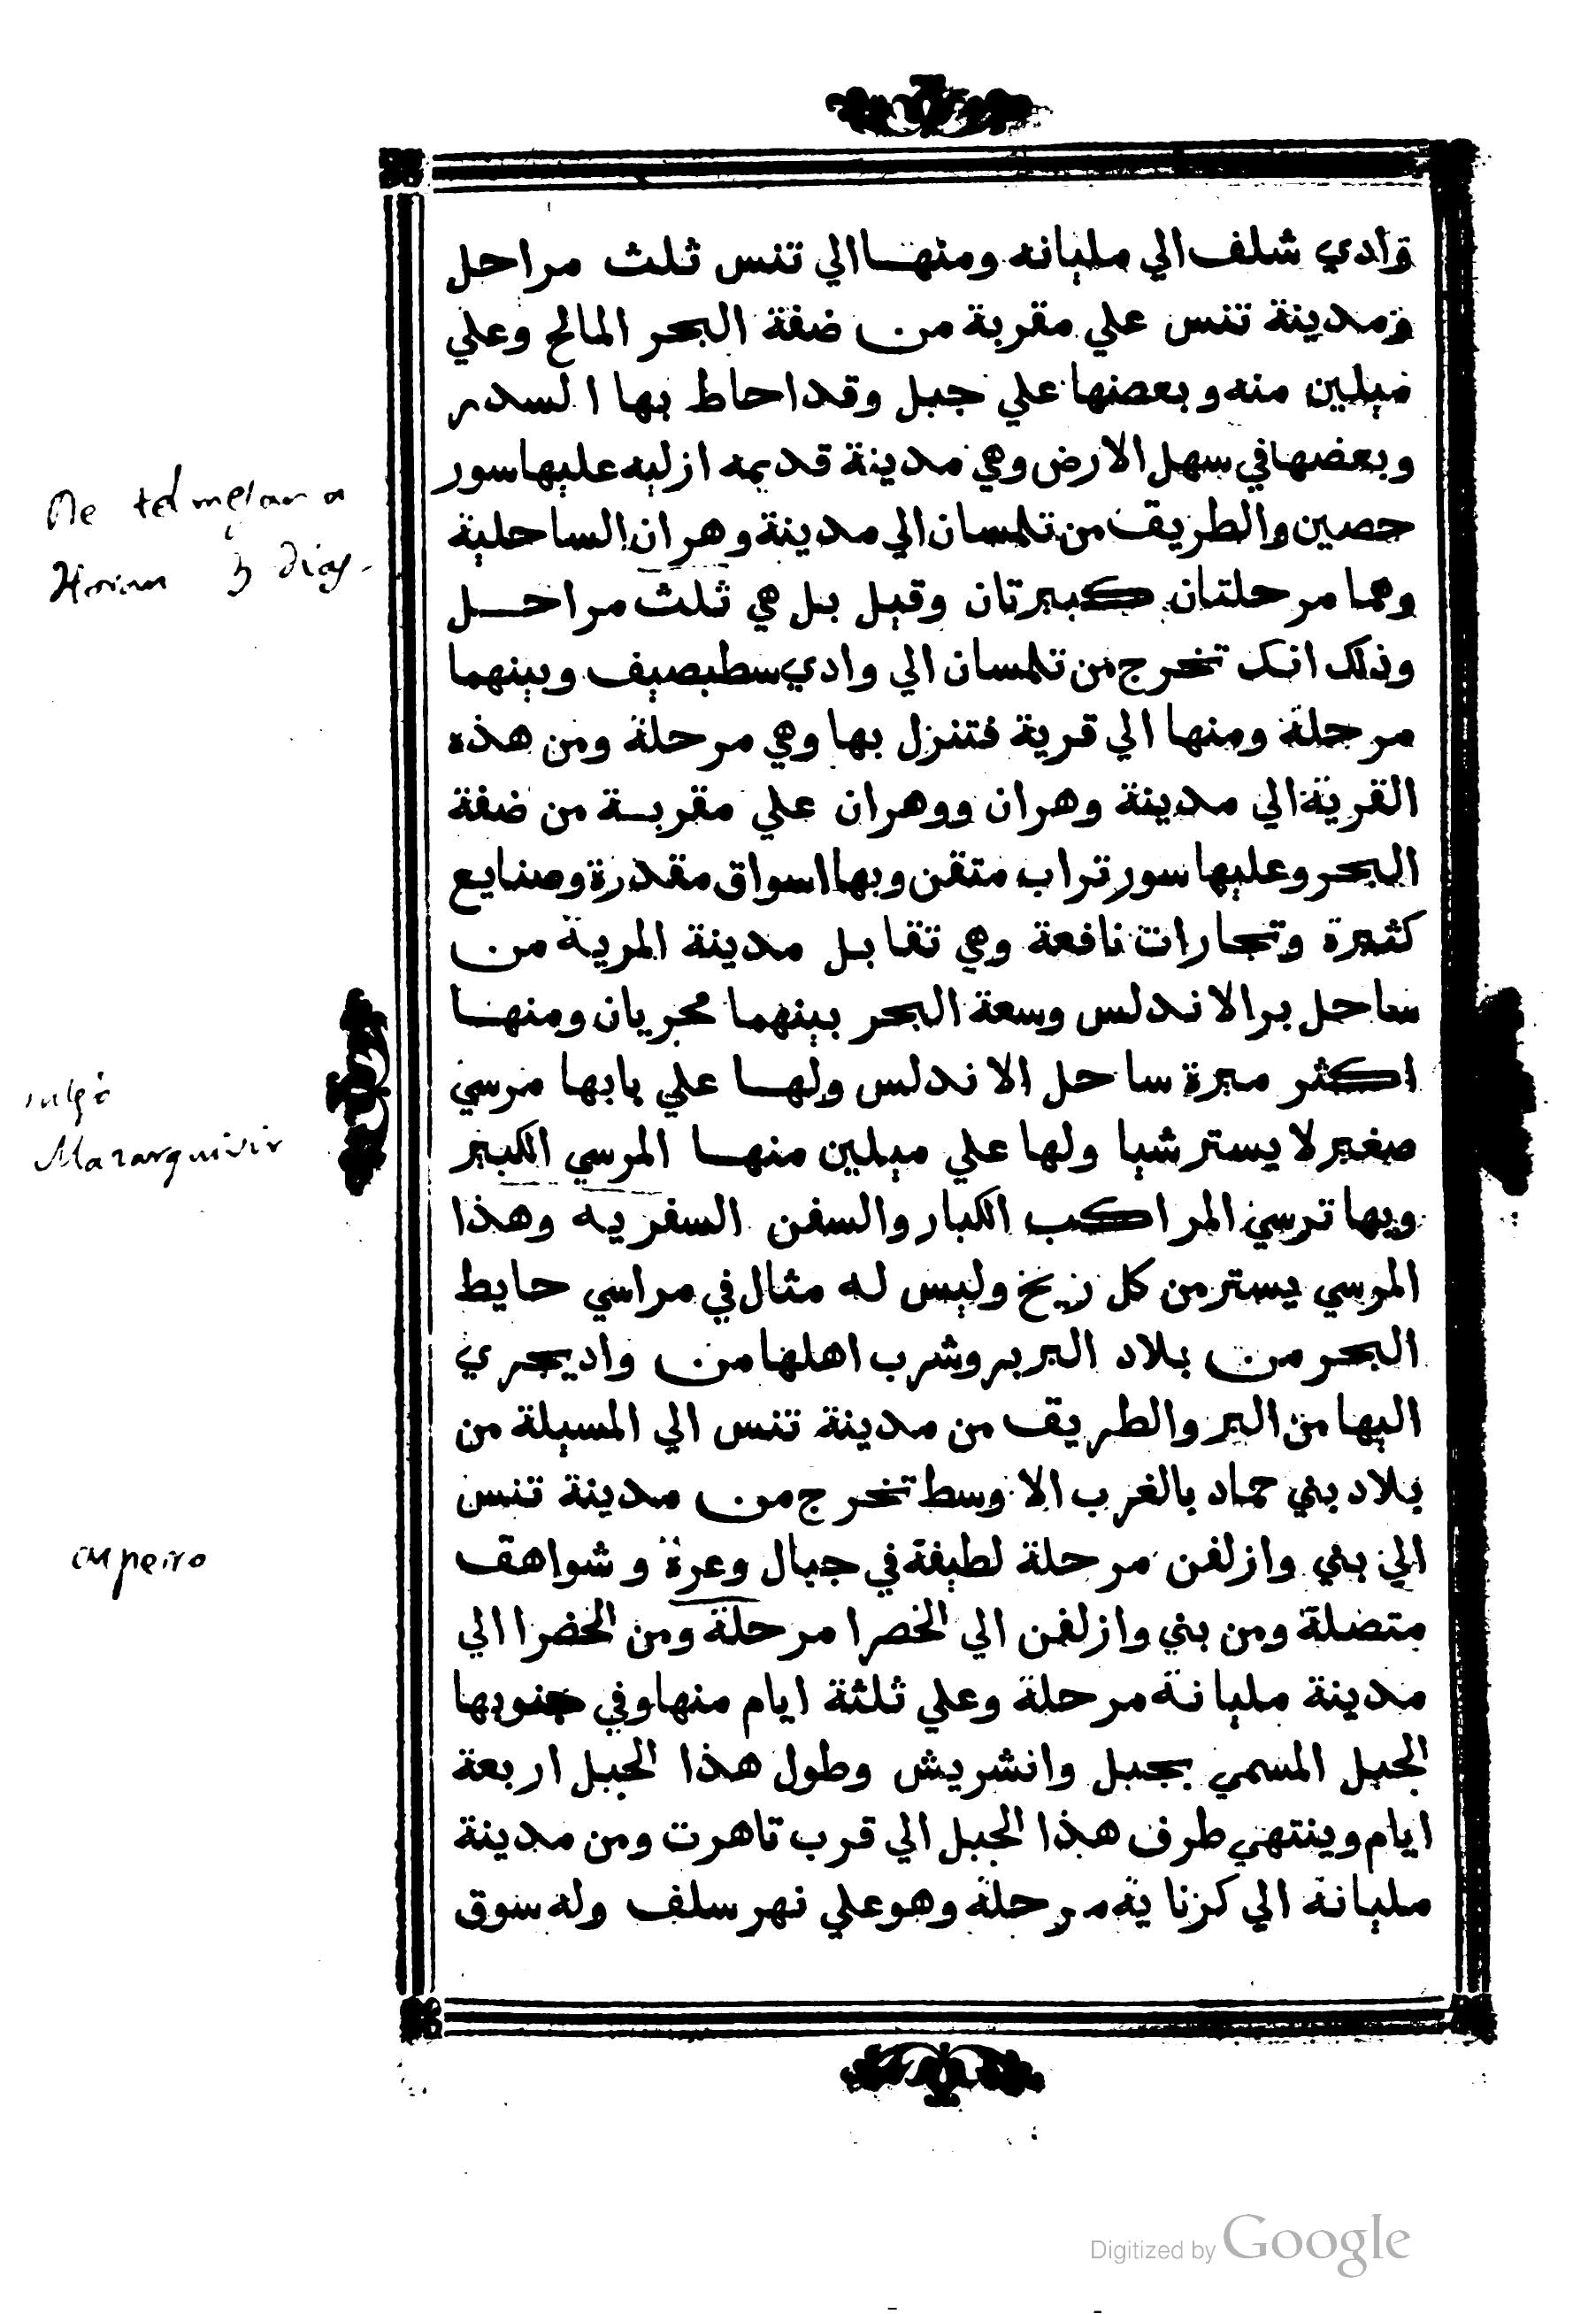 وادي شلف الي مليانه ومنها الي تنس ثلث مراحل
ومدينة تنس علي مقربة من ضفة البحر المالح وعلي
ميلين منه وبعضها علي جبل وقد احاط بها السدر
وبعضها في سهل الارض وهي مدينة قديمه ازليه عليها سور
حصين والطريق من تلمسان الي مدينة وهران الساحلية
وهما مرحلتان كبيرتان وقيل بل هي ثلث مراحل
وذلك انك تخرج من تلمسان الي وادي سطبصيف وبينهما
مرحلة ومنها الي قرية فتنزل بها وهي مرحلة ومن هذه
القرية الي مدينة وهران ووهران علي مقربة من ضفة
البحر وعليها سور تراب متقن وبها اسواق مقدرة وصنايع
كثيرة وتجارات نافعة وهي تقابل مدينة المرية من
ساحل بر الاندلس وسعة البحر بينهما مجريان ومنها
اكثر ميرة ساحل الاندلس ولها علي بابها مرسي
صغير لا يستر شيا ولها علي ميلين منها المرسي الكبير
وبها ترسي المراكب الكبار والسفن السفريه وهذا
المرسي يستر من كل ريح وليس له مثال في مراسي حايط
البحر من بلاد البربر وشرب اهلها من واد يجري
اليها من البر والطريق من مدينة تنس الي المسيلة من
بلاد بني حماد بالغرب الاوسط تخرج من مدينة تنس
الي بني وازلفن مرحلة لطيفة في جبال وعرة وشواهق
متصلة ومن بني وازلفن الي الخضرا مرحلة ومن الخضرا الي
مدينة مليانة مرحلة وعلي ثلثة ايام منها وفي جنوبها
الجبل المسمي بجبل وانشريش وطول هذا الجبل اربعة
ايام وينتهي طرف هذا الجبل الي قرب تاهرت ومن مدينة
مليانة الي كزناية مرحلة وهو علي نهر سلف وله سوق
De telmesan a
Horan 3 dias
vulgo
Mazarquivir
aspero
Digitized by Google